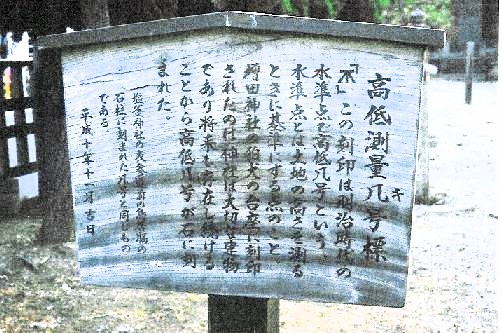 高低測量几号標
キ
「不」この刻印は明治時代の
水準点で高低几号という、
水準点とは土地の高さを測る
ときに基準にする点のこと
神社の狛犬の台座に刻印
されたのは神社は大切な建物
であり将来も存在し続ける
ことから高低几号が石に刻
まれた。
石柱に刻まれた几号と同じもの
である
平成十年十一月吉日